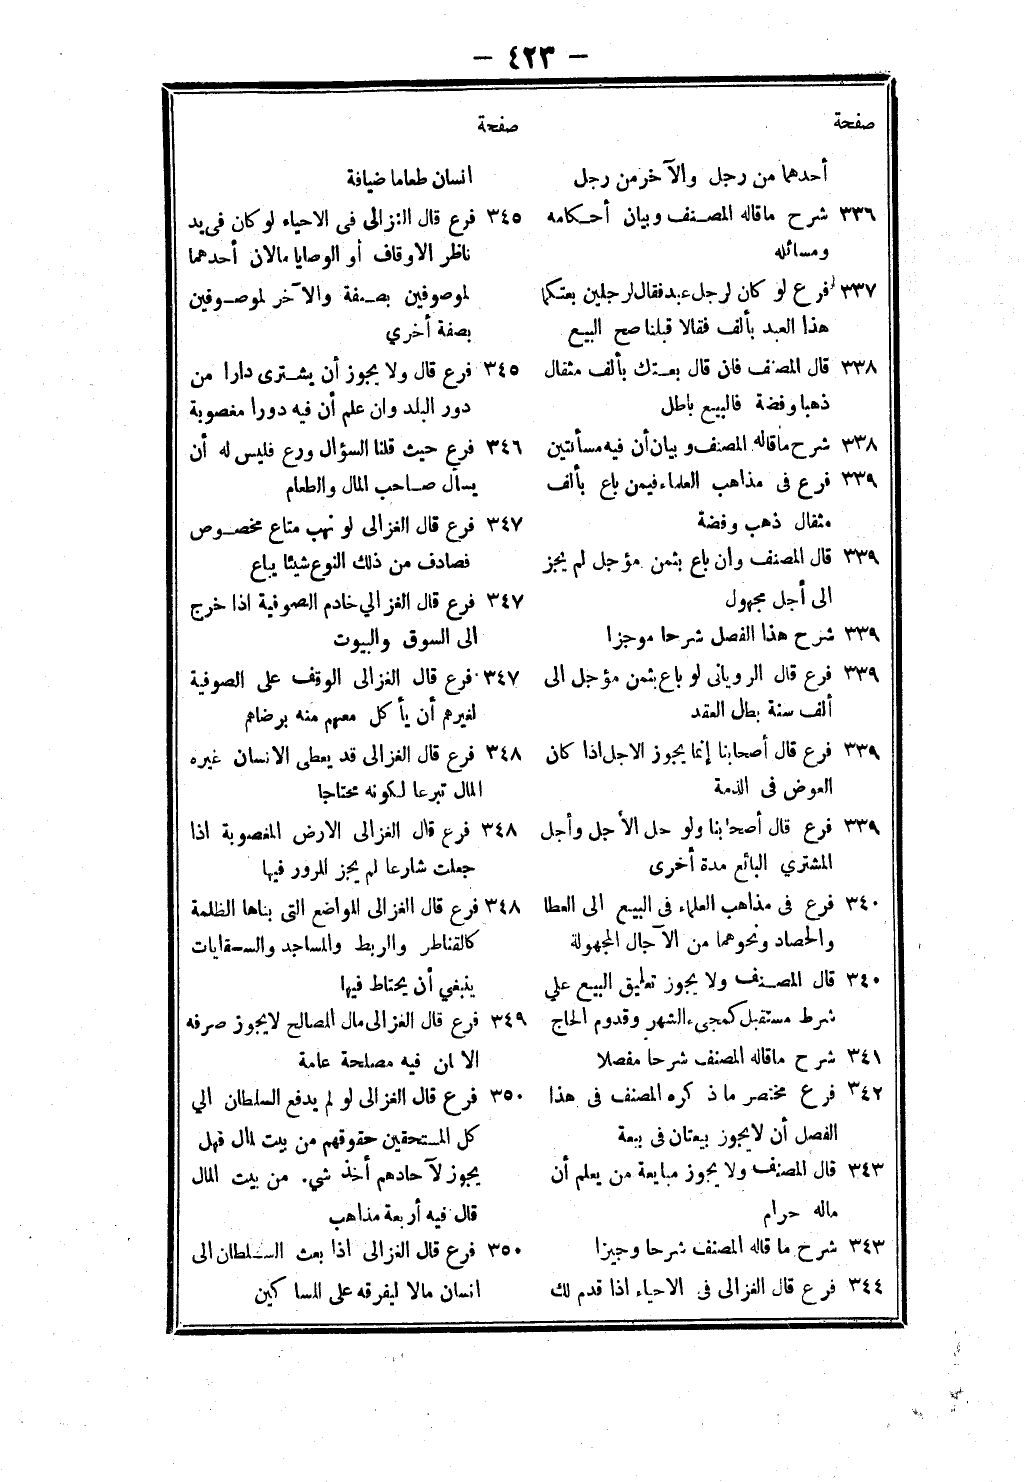 — ٤٢٣ —
صفحة
أحدهما من رجل والآخر من رجل
٣٣٦ شرح ماقاله المصنف وبيان أحكامه
ومسائله
٣٣٧ فرع لو كان لرجل عبد فقال لرجلين بعتكما
هذا العبد بألف فقالا قبلنا صح البيع
٣٣٨ قال المصنف فان قال بعتك بألف مثقال
ذهبا وفضة فالبيع باطل
٣٣٨ شرح ماقاله المصنف وبيان أن فيه مسألتين
٣٣٩ فرع فى مذاهب العلماء فيمن باع بألف
مثقال ذهب وفضة
٣٣٩ قال المصنف وان باع بثمن مؤجل لم يجز
الى أجل مجهول
٣٣٩ شرح هذا الفصل شرحا موجزا
٣٣٩ فرع قال الرويانى لو باع بثمن مؤجل الى
ألف سنة بطل العقد
٣٣٩ فرع قال أصحابنا إنما يجوز الاجل اذا كان
العوض فى الذمة
٣٣٩ فرع قال أصحابنا ولو حل الأجل وأجل
المشتري البائع مدة أخرى
٣٤٠ فرع فى مذاهب العلماء فى البيع الى العطا
والحصاد ونحوهما من الآجال المجهولة
٣٤٠ قال المصنف ولا يجوز تعليق البيع علي
شرط مستقبل كمجىء الشهر وقدوم الحاج
٣٤١ شرح ماقاله المصنف شرحا مفصلا
٣٤٢ فرع مختصر ماذكره المصنف فى هذا
الفصل أن لايجوز بيعتان فى بيعة
٣٤٣ قال المصنف ولا يجوز مبايعة من يعلم أن
ماله حرام
٣٤٣ شرح ما قاله المصنف شرحا وجيزا
٣٤٤ فرع قال الغزالى فى الاحياء اذا قدم لك
صفحة
انسان طعاما ضيافة
٣٤٥ فرع قال الغزالى فى الاحياء لو كان فى يد
ناظر الاوقاف أو الوصايا مالان أحدهما
لموصوفين بصفة والآخر لموصوفين
بصفة أخري
٣٤٥ فرع قال ولا يجوز أن يشترى دارا من
دور البلد وان علم أن فيه دورا مغصوبة
٣٤٦ فرع حيث قلنا السؤال ورع فليس له أن
يسال صاحب المال والطعام
٣٤٧ فرع قال الغزالى لو نهب متاع مخصوص
فصادف من ذلك النوع شيئا يباع
٣٤٧ فرع قال الغزالي خادم الصوفية اذا خرج
الى السوق والبيوت
٣٤٧ فرع قال الغزالى الوقف على الصوفية
لغيرهم أن يأكل معهم منه برضاهم
٣٤٨ فرع قال الغزالى قد يعطى الانسان غيره
المال تبرعا لكونه محتاجا
٣٤٨ فرع قال الغزالى الارض المغصوبة اذا
جعلت شارعا لم يجز المرور فيها
٣٤٨ فرع قال الغزالى المواضع التى بناها الظلمة
كالقناطر والربط والمساجد والسقايات
ينبغي أن يحتاط فيها
٣٤٩ فرع قال الغزالى مال المصالح لايجوز صرفه
الا لمن فيه مصلحة عامة
٣٥٠ فرع قال الغزالى لو لم يدفع السلطان الي
كل المستحقين حقوقهم من بيت المال فهل
يجوز لآحادهم أخذ شيء من بيت المال
قال فيه أربعة مذاهب
٣٥٠ فرع قال الغزالى اذا بعث السلطان الى
انسان مالا ليفرقه على المساكين